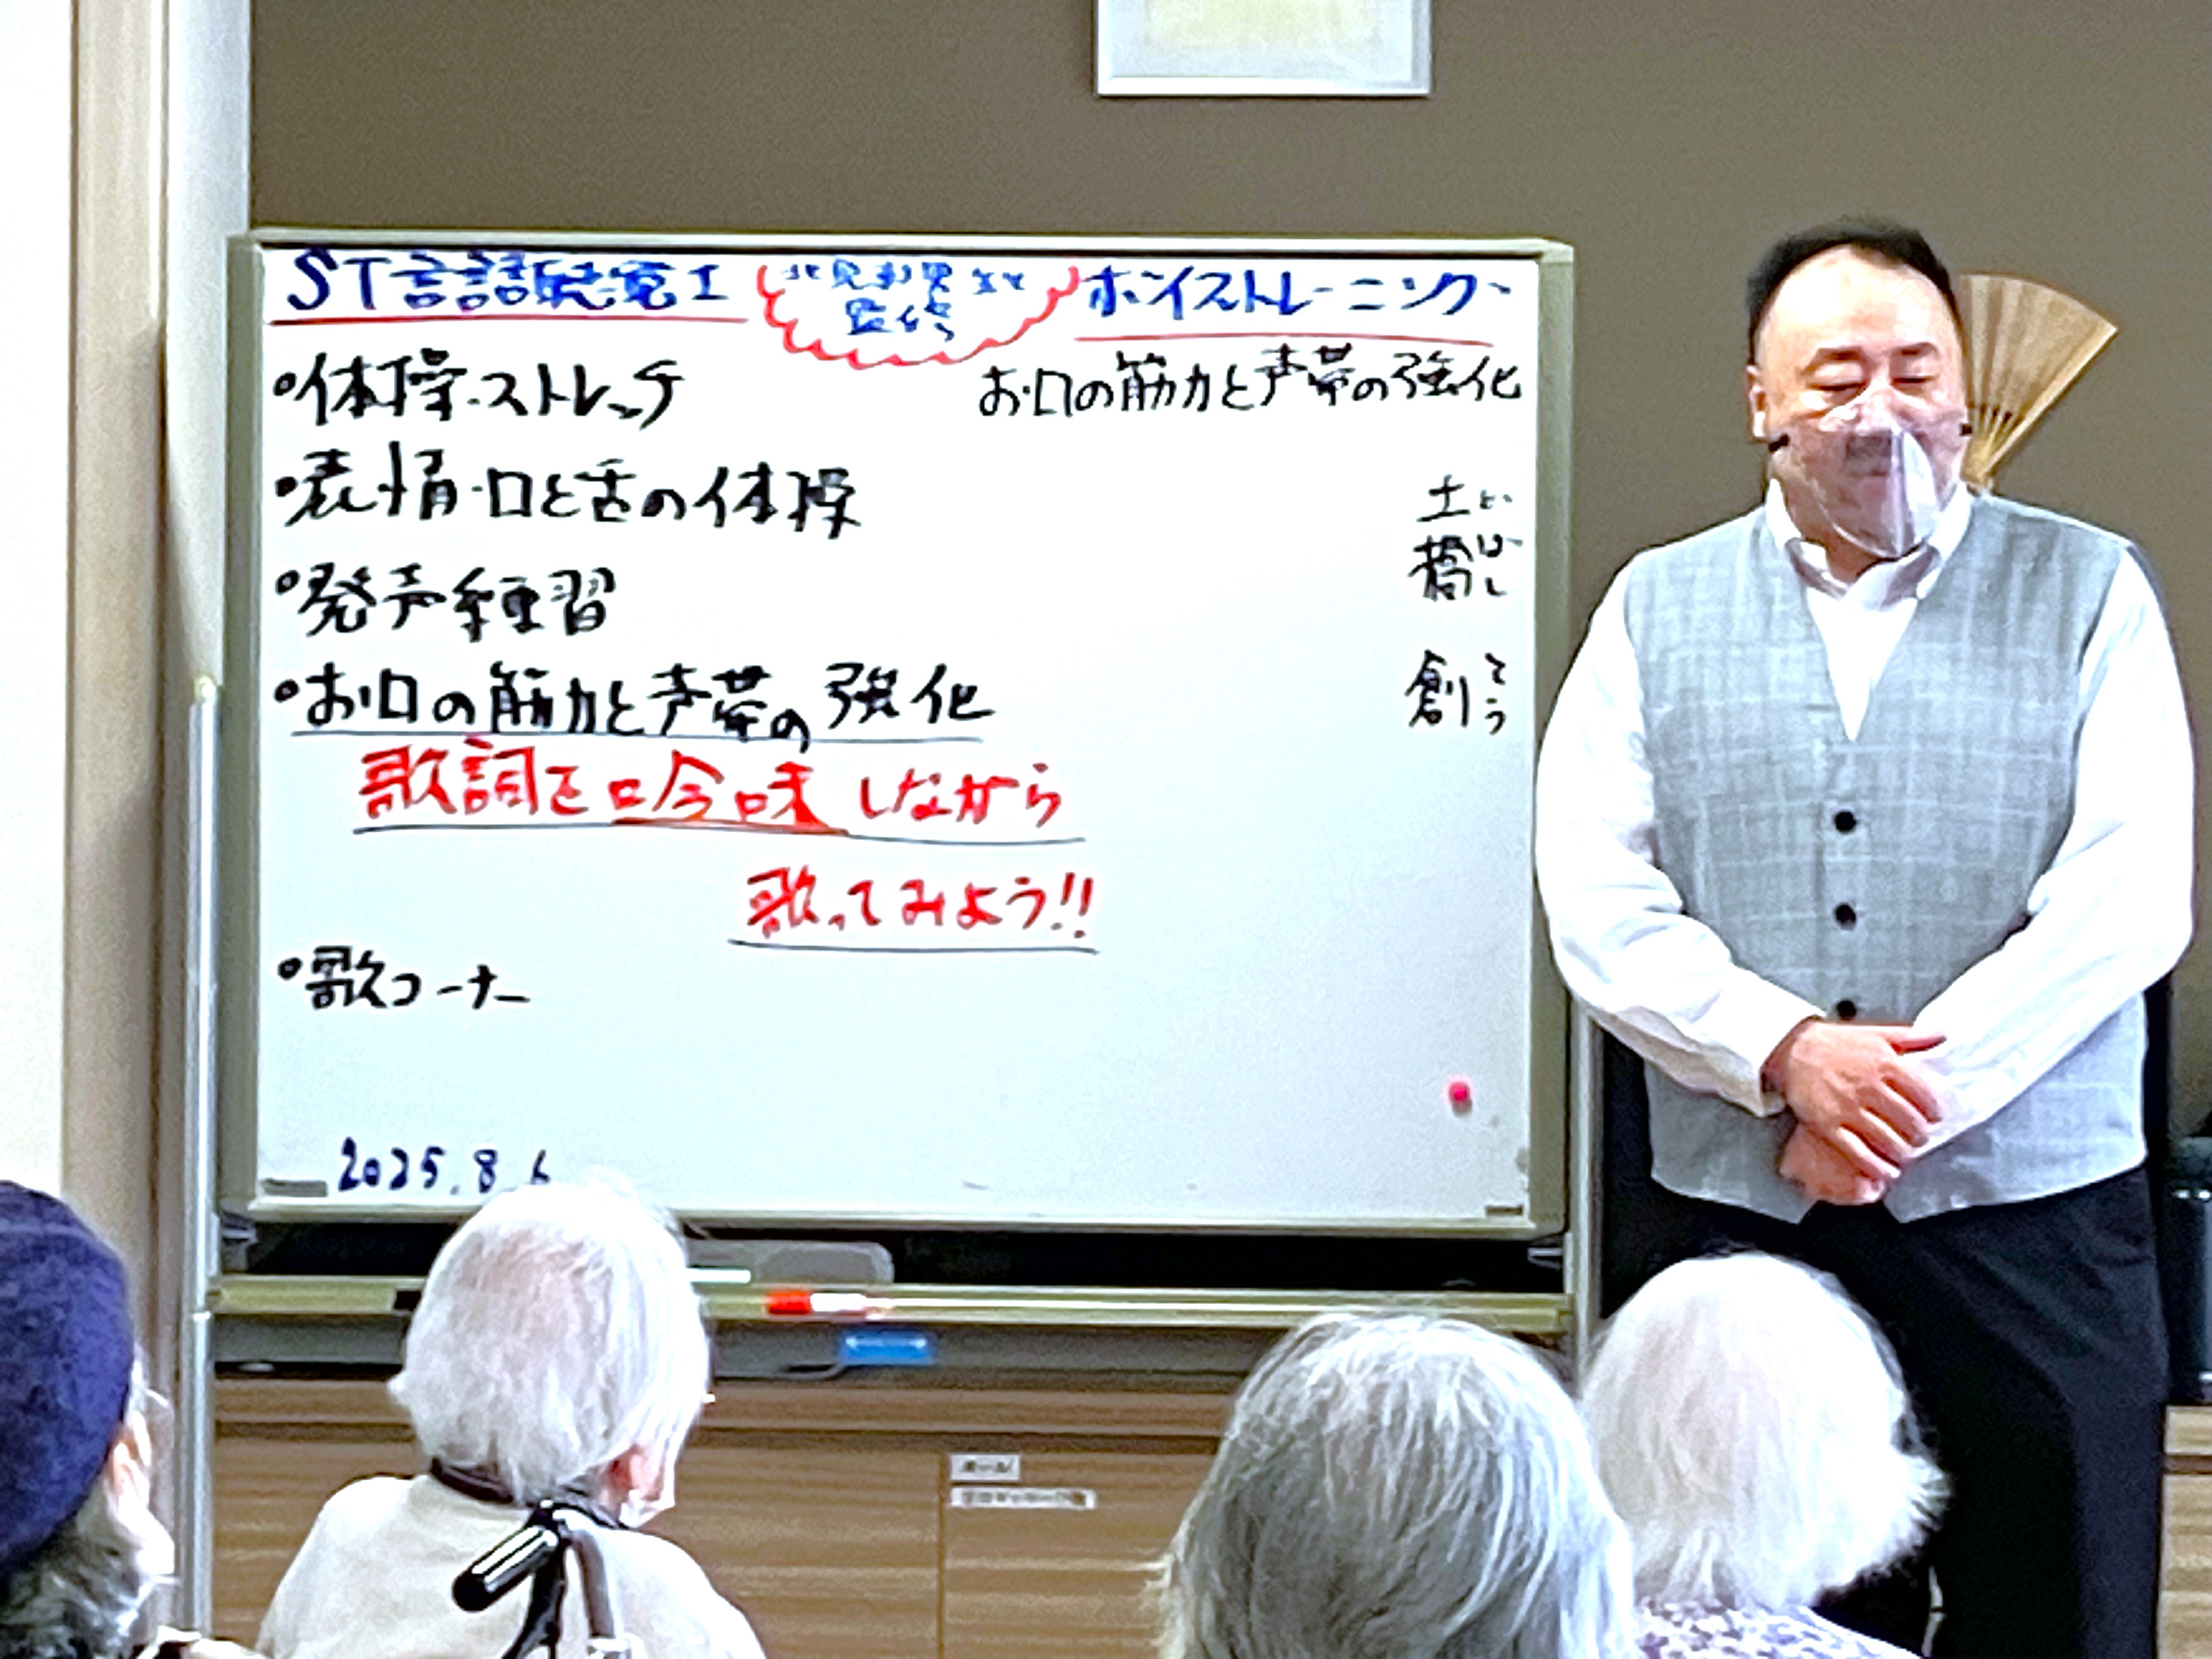 ST言語聴覚士
監修
ボイストレーニング
お口の筋力と声帯の強化
•体操・ストレッチ
•表情・口と舌の体操
•発声練習
•お口の筋力と声帯の強化
歌詞を吟味しながら
歌ってみよう!!
•歌コーナー
土橋 どばし
創 そう
2025.8.6